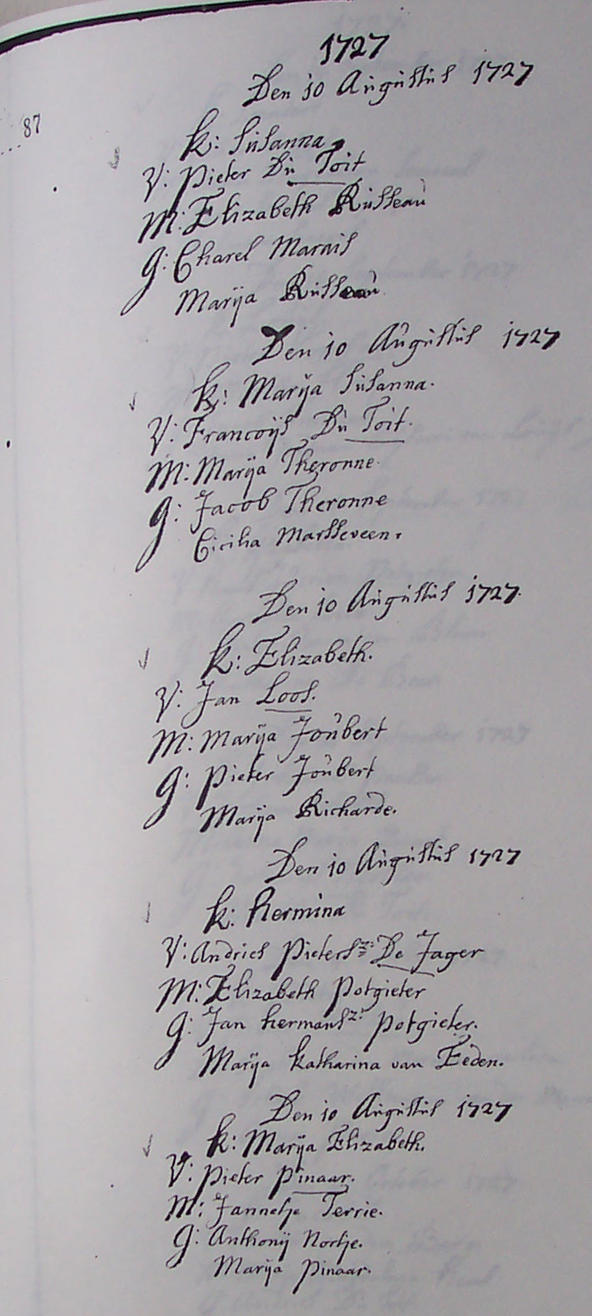 1727
Den 10 Augustus 1727
87
K: Susanna
V: Pieter Du Toit
M: Elizabeth Russeau
G: Charel Marais
Marija Russeau
Den 10 Augustus 1727
K: Marija Susanna.
V: Francoijs Du Toit.
M: Marija Theronne
G: Jacob Theronne
Cicilia Marsseveen.
Den 10 Augustus 1727.
K: Elizabeth.
V: Jan Loos.
M: Marija Joubert
G: Pieter Joubert
Marija Richarde.
Den 10 Augustus 1727
K: Hermina
V: Andries Pietersz: De Jager
M: Elizabeth Potgieter
G: Jan Hermansz: Potgieter.
Marija Katharina van Eeden.
Den 10 Augustus 1727
K: Marija Elizabeth.
V: Pieter Pinaar.
M: Jannetje Terrie.
G: Anthonij Nortje.
Marija Pinaar.